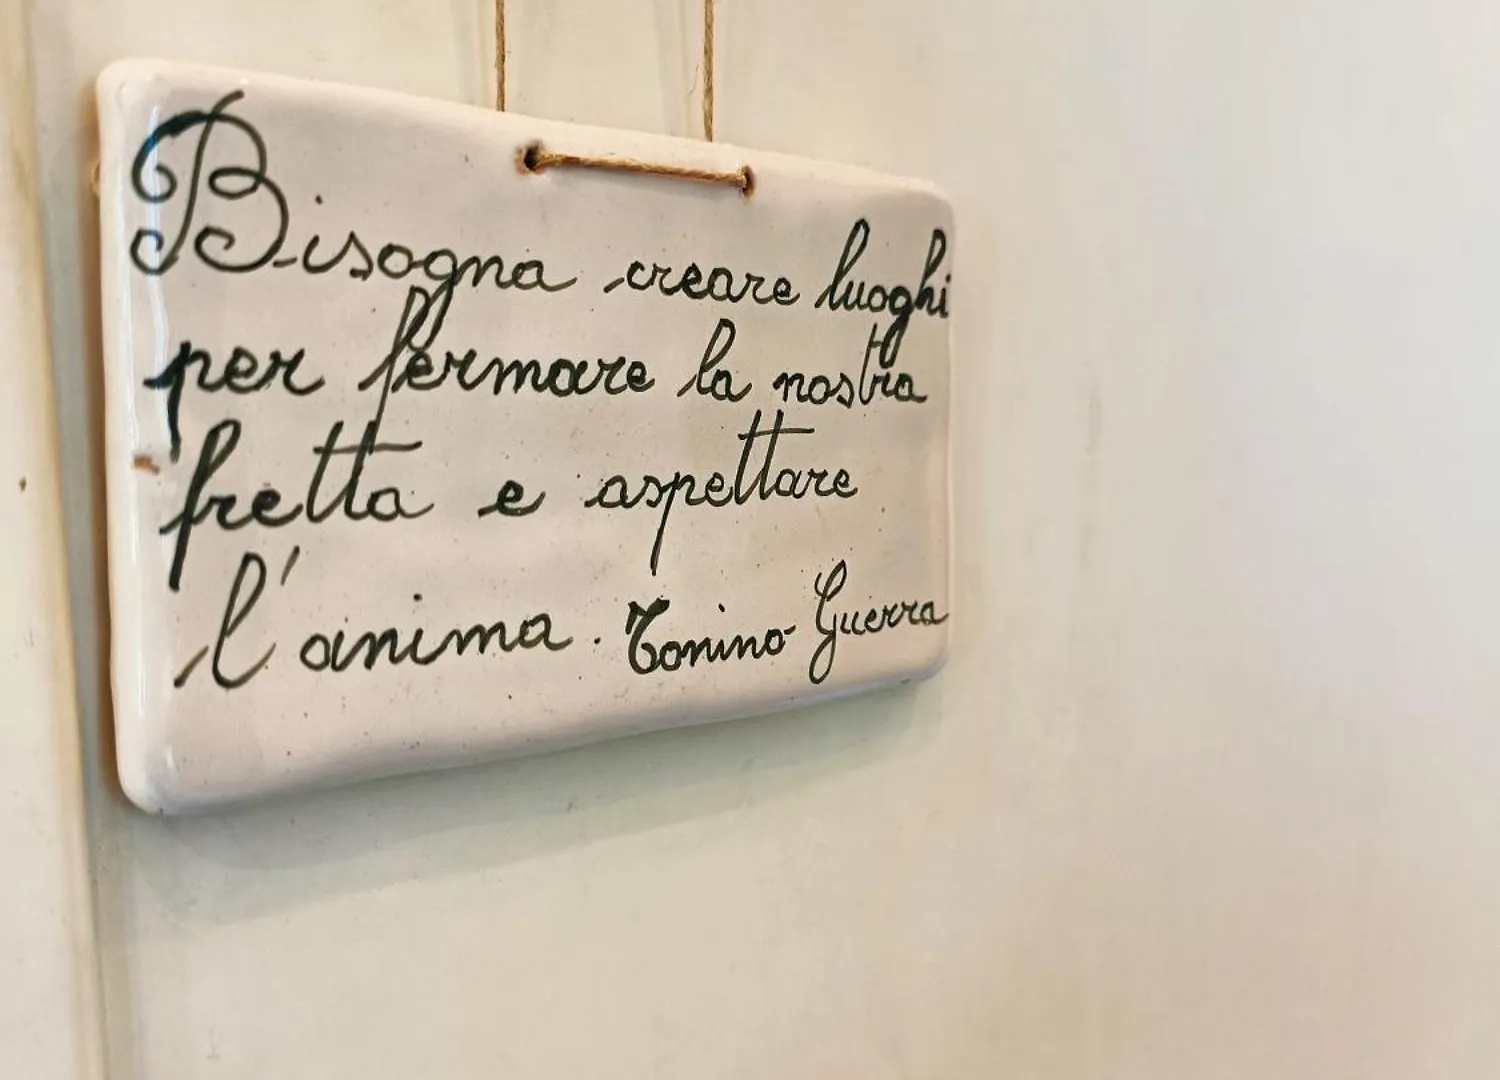 Bisogna creare luoghi
per fermare la nostra
fretta e aspettare
l'anima. Tonino Guerra